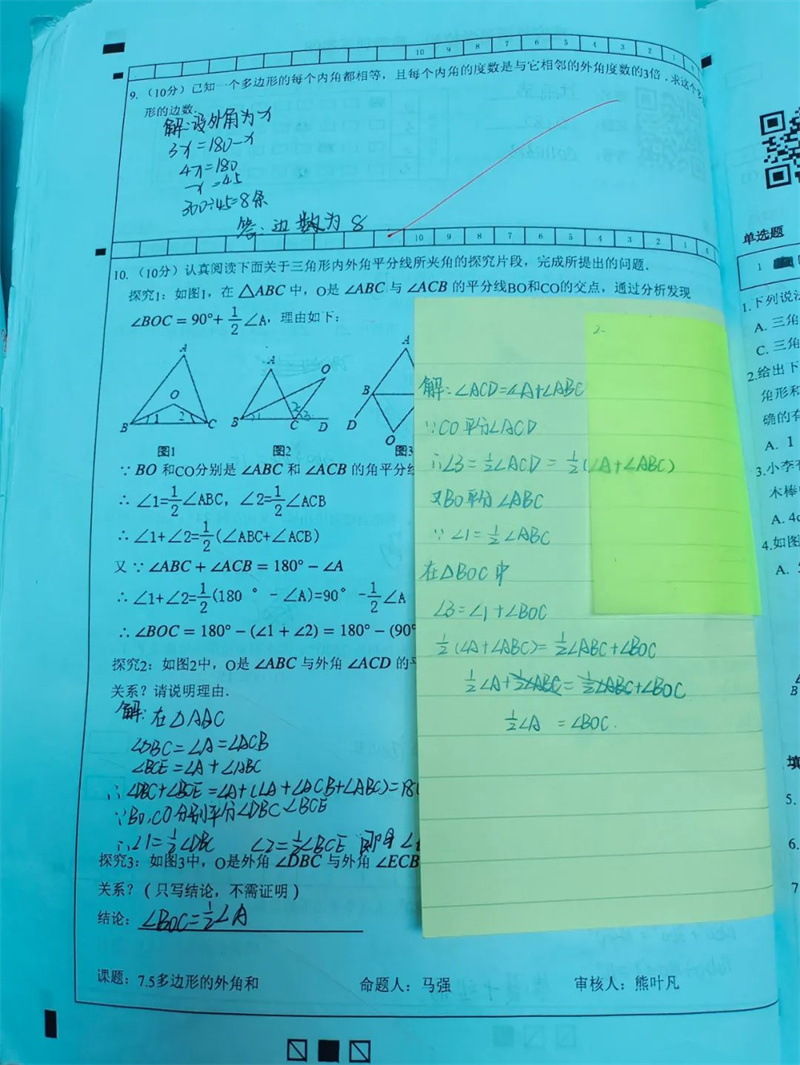 10 9 8 7 6 5 4 3 2 1
9. (10分) 已知一个多边形的每个内角都相等，且每个内角的度数是与它相邻的外角度数的3倍．求这个多
形的边数.
解:设外角为x
3x=180-x
4x=180
x=45
360÷45=8条
答:边数为8
10 9 8 7 6 5 4 3 2 1
10. (10分) 认真阅读下面关于三角形内外角平分线所夹角的探究片段，完成所提出的问题．
探究1：如图1，在 △ABC 中，O是 ∠ABC 与 ∠ACB 的平分线BO和CO的交点，通过分析发现
∠BOC = 90°+ 1/2 ∠A，理由如下：
A O 1 2 B C
A O B C D
A B O
图1 图2 图3
∵ BO 和CO分别是 ∠ABC 和 ∠ACB 的角平分线
∴ ∠1=1/2∠ABC，∠2=1/2∠ACB
∴ ∠1+∠2=1/2(∠ABC+∠ACB)
又 ∵ ∠ABC + ∠ACB = 180° − ∠A
∴ ∠1+∠2=1/2(180 ° - ∠A)=90° -1/2∠A
∴ ∠BOC = 180° − (∠1 + ∠2) = 180° − (90°
探究2：如图2中，O是 ∠ABC 与外角 ∠ACD 的平
关系？请说明理由．
解:在△ABC
∠DBC=∠A=∠ACB
∠BCE=∠A+∠ABC
∴∠DBC+∠BCE=∠A+(∠A+∠ACB+∠ABC)=180
∵BO,CO分别平分∠DBC ∠BCE
∴∠1=1/2∠DBC ∠2=1/2∠BCE
探究3：如图3中，O是外角 ∠DBC 与外角 ∠ECB
关系？(只写结论，不需证明)
结论：∠BOC=1/2∠A
课题：7.5多边形的外角和 命题人：马强 审核人：熊叶凡
2-
解:∠ACD=∠A+∠ABC
∵CO平分∠ACD
∴∠3=1/2∠ACD=1/2(∠A+∠ABC)
又BO平分∠ABC
∵∠1=1/2∠ABC
在△BOC中
∠3=∠1+∠BOC
1/2(∠A+∠ABC)=1/2∠ABC+∠BOC
1/2∠A+1/2∠ABC=1/2∠ABC+∠BOC
1/2∠A =∠BOC.
单选题
1
1.下列说法
A. 三角
C. 三角
2.给出下
角形和
确的有
A. 1
3.小李有
木棒
A. 4c
4.如图
A.
填
5.
6.
7